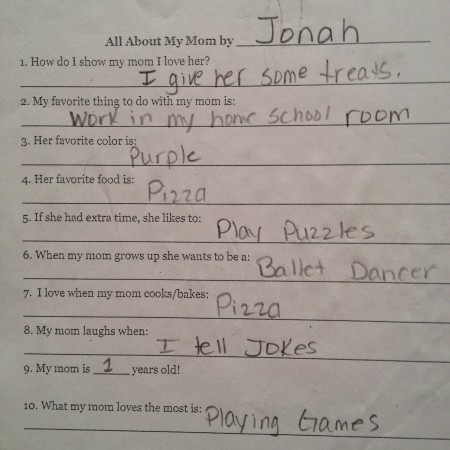 All About My Mom by Jonah
1. How do I show my mom I love her?
I give her some treats.
2. My favorite thing to do with my mom is:
Work in my home school room
3. Her favorite color is:
Purple
4. Her favorite food is:
Pizza
5. If she had extra time, she likes to:
Play Puzzles
6. When my mom grows up she wants to be a:
Ballet Dancer
7. I love when my mom cooks/bakes:
Pizza
8. My mom laughs when:
I tell Jokes
9. My mom is 1 years old!
10. What my mom loves the most is:
Playing Games